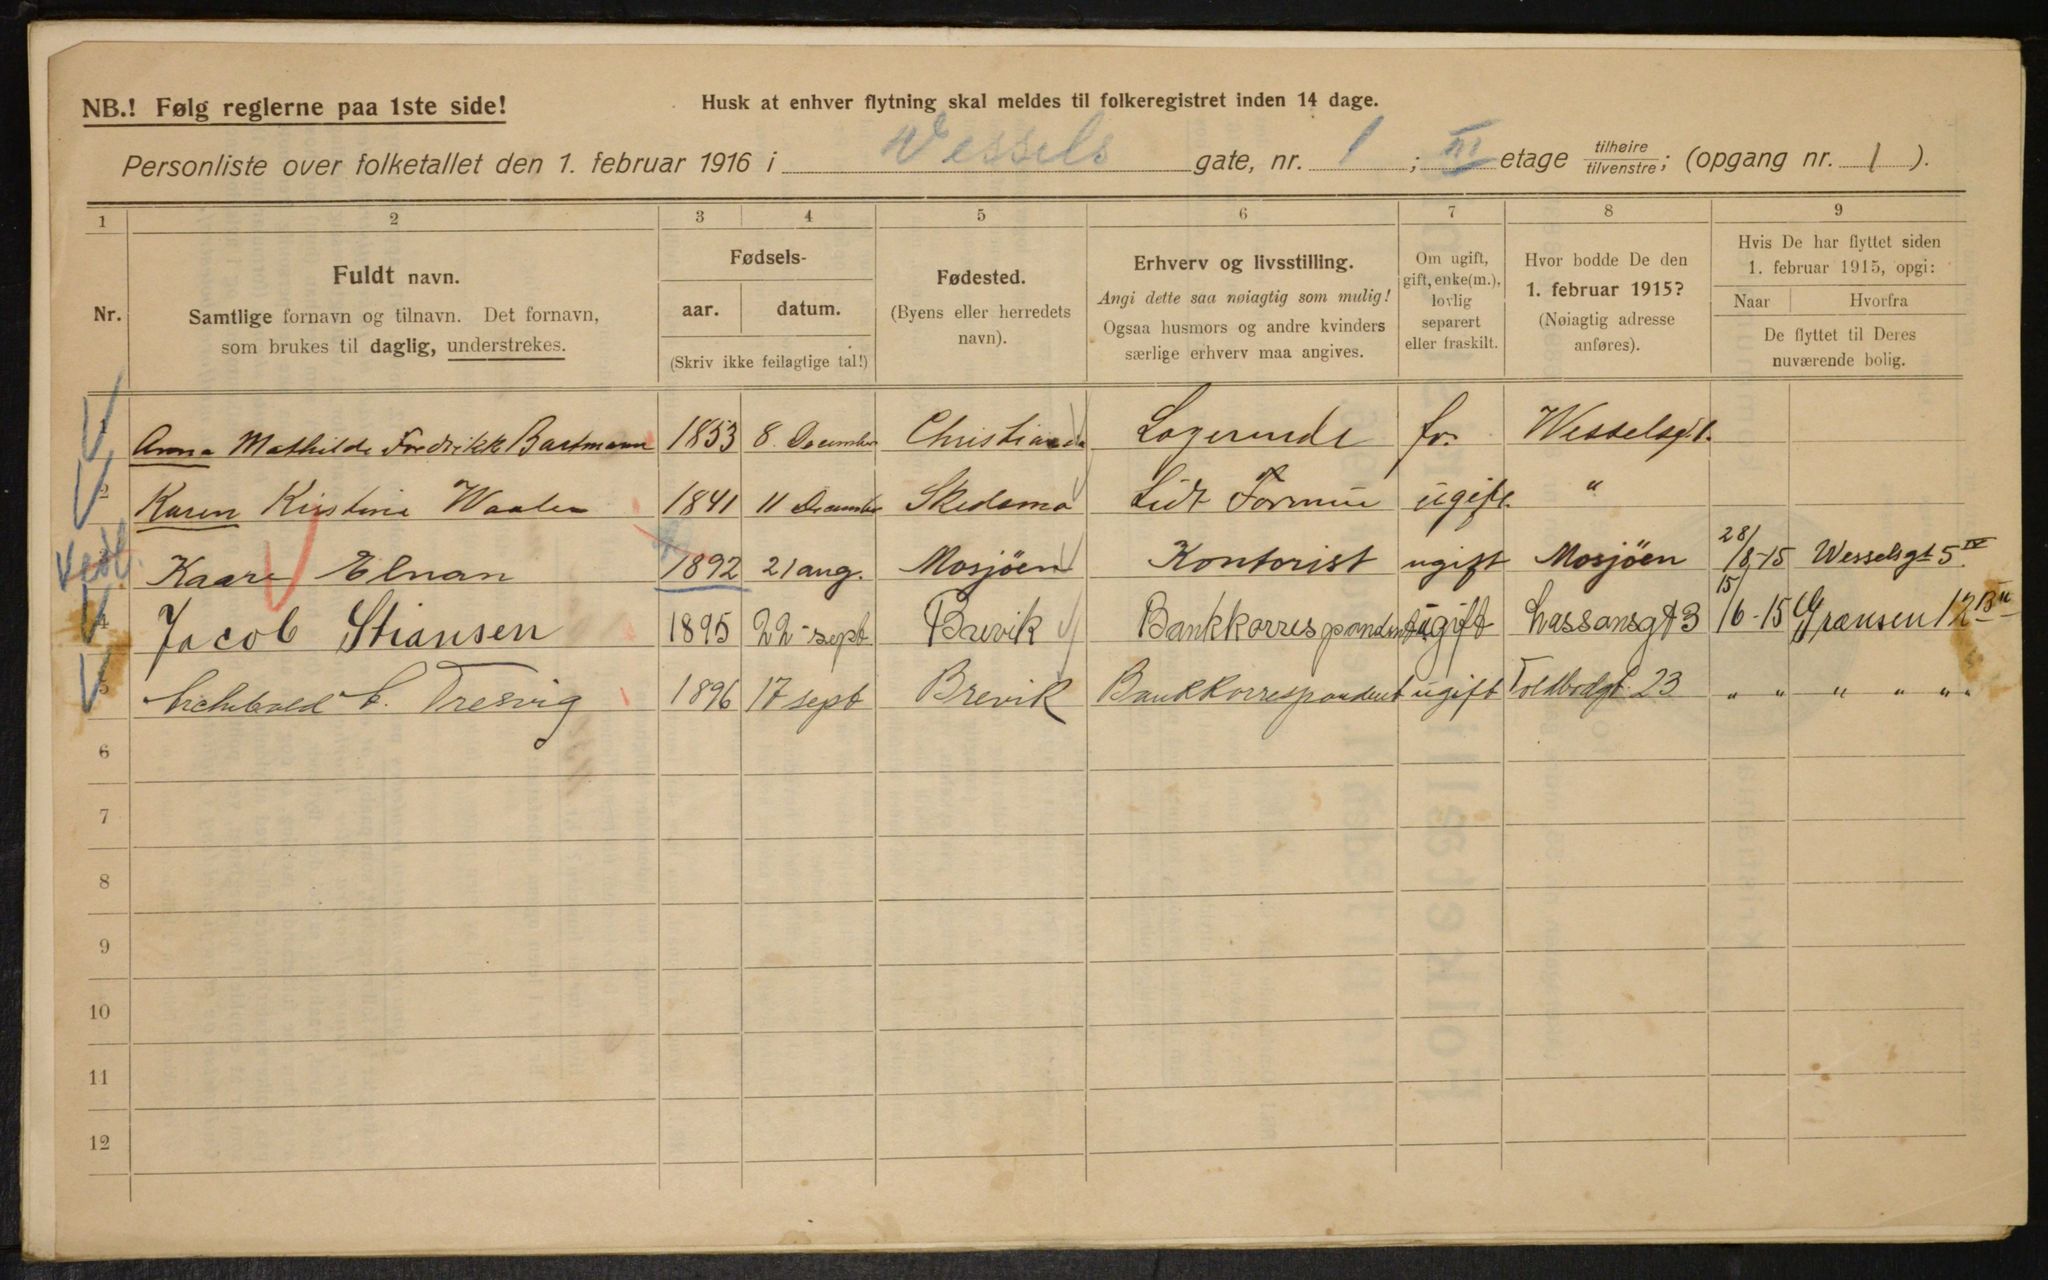 NB.! Følg reglerne paa 1ste side!
Husk at enhver flytning skal meldes til folkeregistret inden 14 dage.
Personliste over folketallet den 1. februar 1916 i Wessels gate, nr. 1 ; III etage tilhøire/tilvenstre; (opgang nr. 1 ).
1 2 3 4 5 6 7 8 9
Nr.
Fuldt navn.
Samtlige fornavn og tilnavn. Det fornavn,
som brukes til daglig, understrekes.
Fødsels-
aar. datum.
(Skriv ikke feilagtige tal!)
Fødested.
(Byens eller herredets
navn).
Erhverv og livsstilling.
Angi dette saa nøiagtig som mulig!
Ogsaa husmors og andre kvinders
særlige erhverv maa angives.
Om ugift,
gift, enke(m.),
lovlig
separert
eller fraskilt.
Hvor bodde De den
1. februar 1915?
(Nøiagtig adresse
anføres).
Hvis De har flyttet siden
1. februar 1915, opgi:
Naar Hvorfra
De flyttet til Deres
nuværende bolig.
Anna Mathilde Fredrikke Bartmann 1853 8 December Christiania Logerende fr. Wesselsgt 1.
2 Karen Kirstine Waaler 1841 11 December Skedsmo Lidt Formue ugift "
Kaare Elnan 1892 21 aug. Mosjöen Kontorist ugift Mosjöen 28/8-15 Wesselsgt 5 IV
4 Jacob Stiansen 1895 22 sept Brevik Bankkorrespondent ugift Lassonsgt 3 15/6-15 Grænsen 12 B II
5 Archibald C. Tresvig 1896 17 sept Brevik Bankkorrespondent ugift Toldbodgt 23 " " " " " "
6
7
8
9
10
11
12